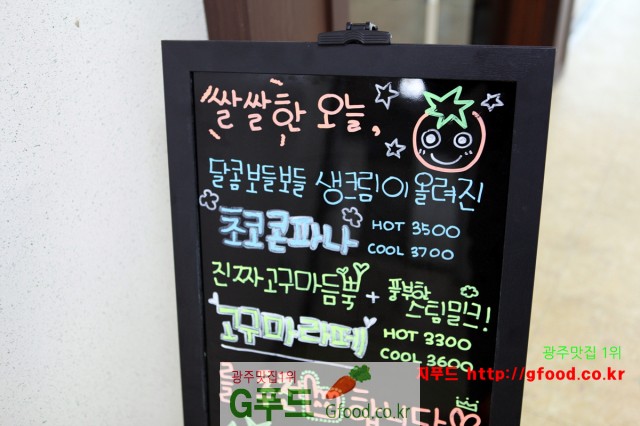 쌀쌀한 오늘,
달콤보들보들 생크림이 올려진
초코콘파나
HOT 3500
COOL 3700
진짜고구마듬뿍 + 풍부한 스팀밀크!
고구마라떼
HOT 3300
COOL 3600
광주맛집 1위
지푸드 http://gfood.co.kr
광주맛집1위
G푸드
Gfood.co.kr